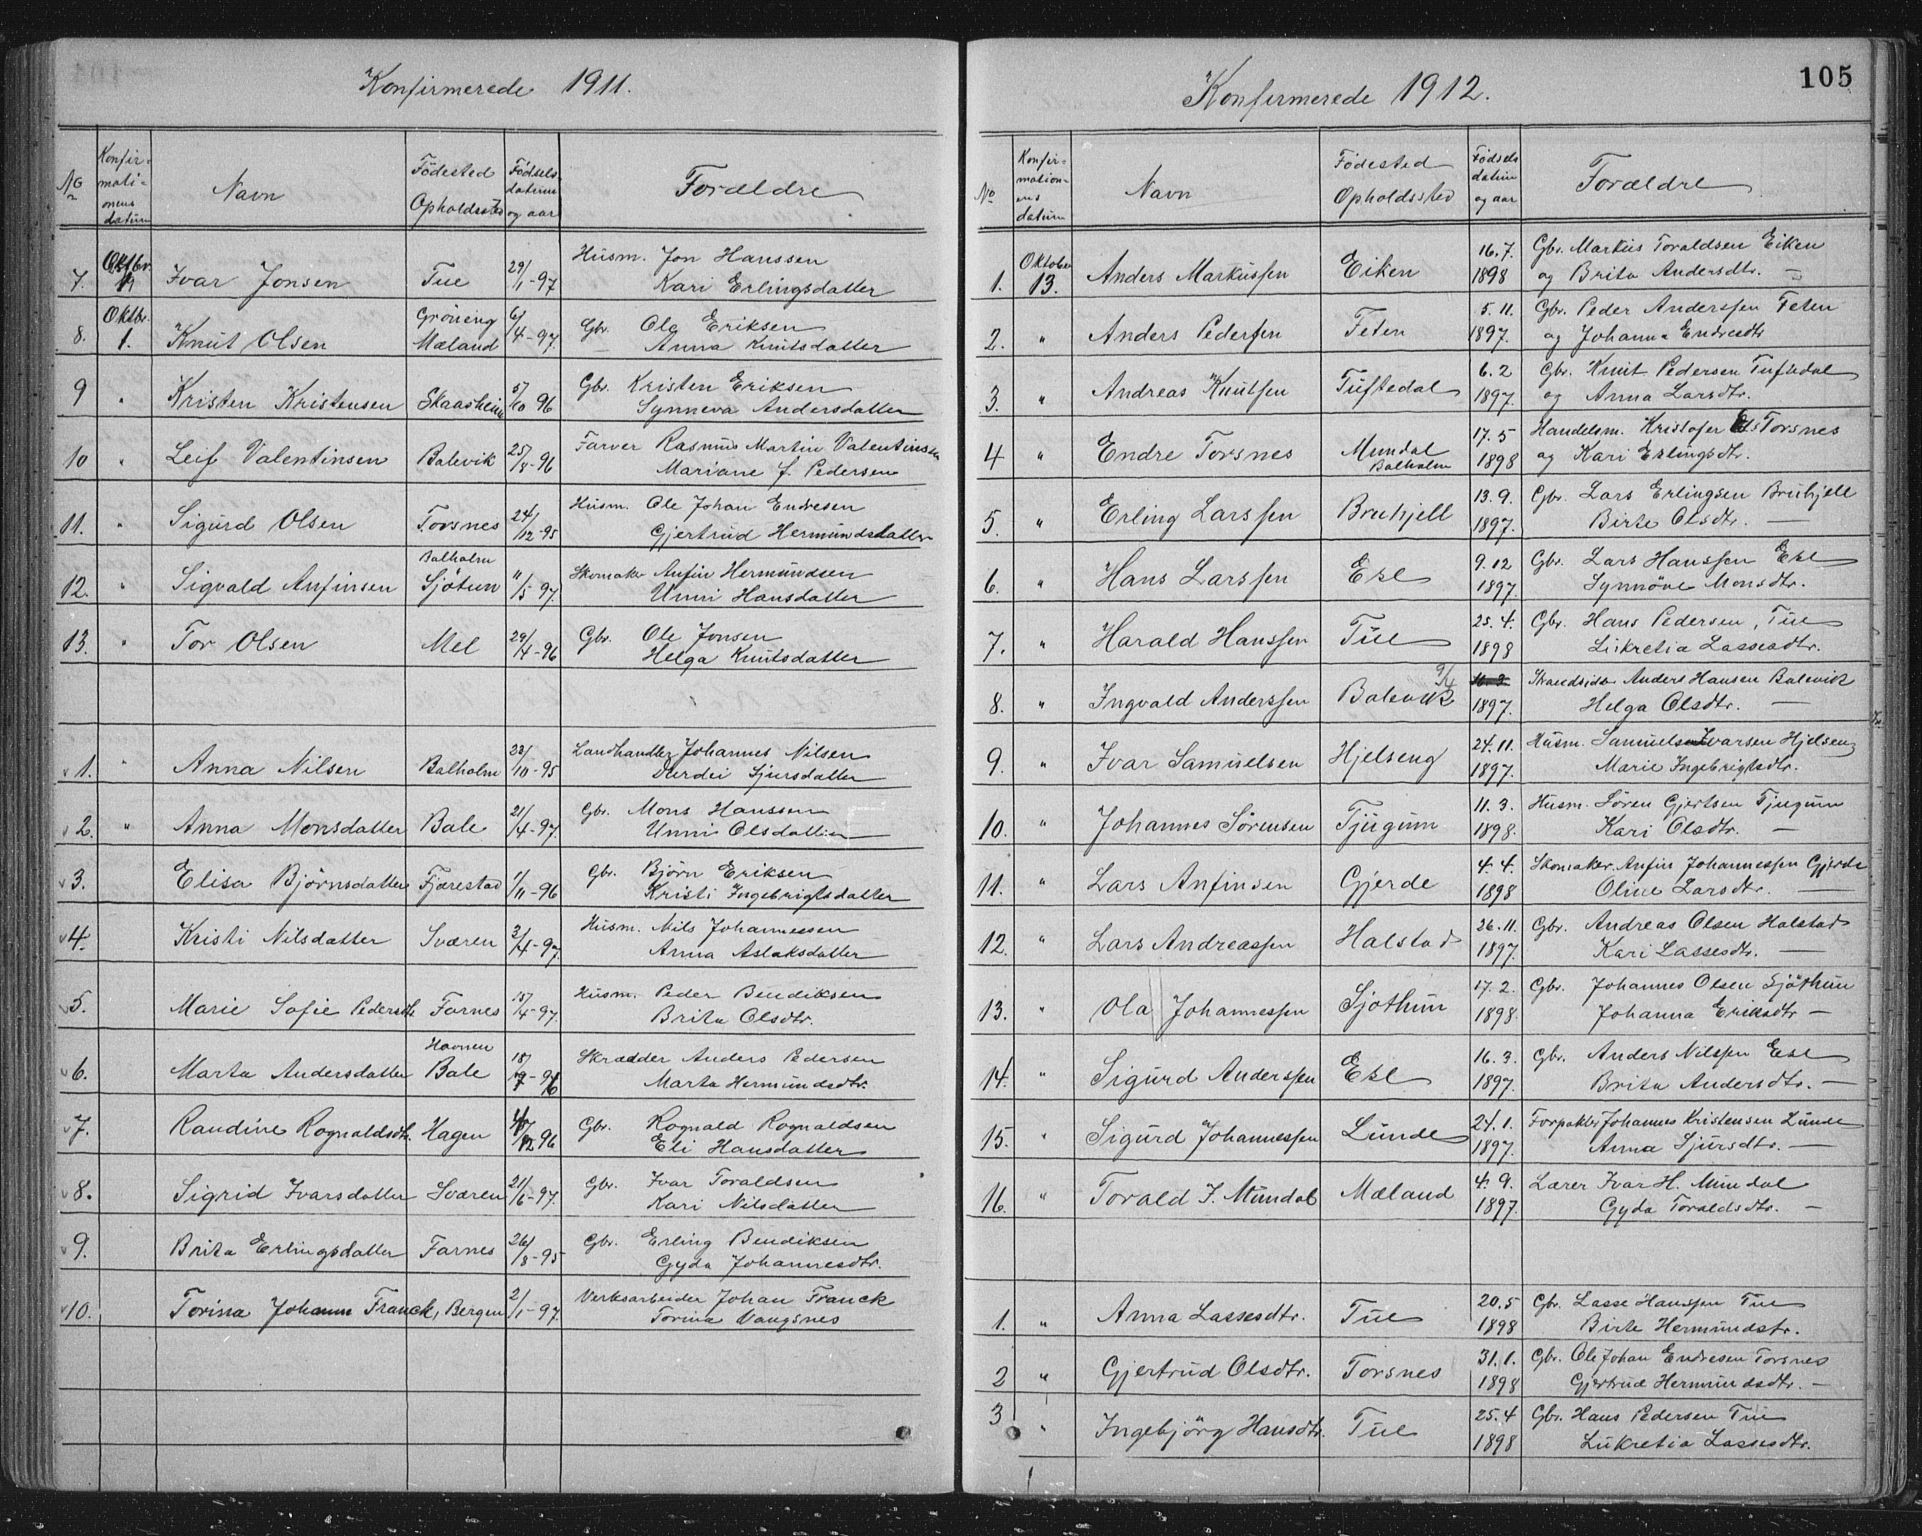 Konfirmerede 1911.
No Konfirmationens datum Navn Födested Opholdssted Födsels datum og aar Forældre
7. Oktbr. 1 Ivar Jonsen Tue 29/1-97 Husm. Jon Hanssen
Kari Erlingsdatter
8. Oktbr. 1. Knut Olsen Gröneng Mæland 6/4-97. Gbr. Ola Eriksen
Anna Knutsdatter
9 " Kristen Kristensen Skaasheim 5/10 96 Gbr. Kristen Eriksen
Synneva Andersdatter
10 " Leif Valentinsen Balevik 25/8-96 Farver Rasmus Martin Valentinsen
Mariane f. Pedersen
11. " Sigurd Olsen Torsnes 24/12-95 Husm. Ole Johan Endresen
Gjertrud Hermundsdatter
12. " Sigvald Anfinsen Balholm Sjötun 11/5-97. Skomaker Anfin Hermundsen
Unni Hansdatter
13. " Tor Olsen Mel 29/4-96 Gbr. Ole Jonsen
Helga Knutsdatter
1. " Anna Nilsen Balholm 23/10-95 Landhandler Johannes Nilsen
Durdei Sjursdatter
2. " Anna Monsdatter Bale 21/4-97. Gbr. Mons Hanssen
Unni Olsdatter
3. Elisa Björnsdatter Fjærestad 1/11-96 Gbr. Björn Eriksen
Kristi Ingebrigtsdatter
4. Kristi Nilsdatter Sværen 3/4-97 Husm. Nils Johannessen
Anna Aslaksdatter
5. Marie Sofie Pedersdtr Farnes 15/4-97. Husm. Peder Bendiksen
Brita Olsdtr.
6. Marta Andersdatter Havnen Bale 18/9-96 Skrædder Anders Pedersen
Marta Hermundsdtr.
7. Raudine Rognaldsdtr. Hagen 12 96 Gbr. Rognald Rognaldsen
Eli Hansdatter
8. Sigrid Ivarsdatter Sværen 21/6-97. Gbr. Ivar Toraldsen
Kari Nilsdatter
9. Brita Erlingsdatter Farnes 26/8-95 Gbr. Erling Bendiksen
Gyda Johannesdtr.
10. Torina Johann Franck, Bergen 2/1-97. Verksarbeider Johan Franck
Torina Vangsnes
105
Konfirmerede 1912.
No Konfirmationens datum Navn Födested Opholdssted Födsels datum og aar Forældre
1. Oktober 13. Anders Markussen Eiken 16.7. 1898 Gbr. Markus Toraldsen Eiken
og Brita Andersdtr. —
2. " Anders Pedersen Feten 5.11. 1897. Gbr. Peder Anderssen Feten
og Johanna Endresdtr
3. " Andreas Knutsen Tuftedal 6.2 1897. Gbr. Knut Pedersen Tuftedal
og Anna Larsdtr.
4 " Endre Torsnes Mundal Balholm 17.5 1898 Handelsm. Kristofer Torsnes
og Kari Erlingsdtr.
5. " Erling Larssen Bruhjell 13.9. 1897. Gbr. Lars Erlingsen Bruhjell
Birte Olsdtr. —
6. " Hans Larssen Ese 9.12 1897. Gbr. Lars Hanssen Ese
Synnöve Monsdtr.
7. " Harald Hanssen Tue 25.4. 1898 Gbr. Hans Pedersen, Tue
Lukretia Lassesdtr.
8. " Ingvald Anderssen Balevik 9/4 1897. Strandsidr. Anders Hansen Balevik
Helga Olsdtr. —
9. " Ivar Samuelsen Hjelseng 24.11. 1897. Husm. Samuel Ivarsen Hjelseng
Marie Ingebrigtsdtr.
10. " Johannes Sörensen Tjugum 11.3. 1898. Husm. Sören Gjertsen Tjugum
Kari Olsdtr. —
11. " Lars Anfinsen Gjerde 4.4. 1898 Skomaker Anfin Johannessen Gjerde
Oline Larsdtr. —
12. " Lars Andreassen Halstad 26.11. 1897. Gbr. Andreas Olsen Halstad
Kari Lassesdtr. —
13. " Ola Johannessen Sjöthun 17.2. 1898. Gbr. Johannes Olsen Sjöthun
Johanna Eriksdtr —
14. " Sigurd Anderssen Ese 16.3. 1897. Gbr. Anders Nilssen Ese
Brita Andersdtr. —
15. " Sigurd Johannessen Lunde 24.1. 1897. Forpakter Johannes Kristensen Lunde
Anna Sjursdtr. —
16. " Torald I. Mundal Mæland 4.9. 1897 Lærer Ivar H. Mundal
Gyda Toraldsdtr. —
1. " Anna Lassesdtr. Tue 20.5 1898 Gbr. Lasse Hanssen Tue
Birte Hermundsdtr.
2 " Gjertrud Olsdtr. Torsnes 31.1. 1898 Gbr. Ole Johan Endresen Torsnes
Gjertrud Hermundsdtr. —
3 " Ingebjörg Hansdtr. Tue 25.4 1898 Gbr. Hans Pedersen Tue
Lukretia Lassesdtr.